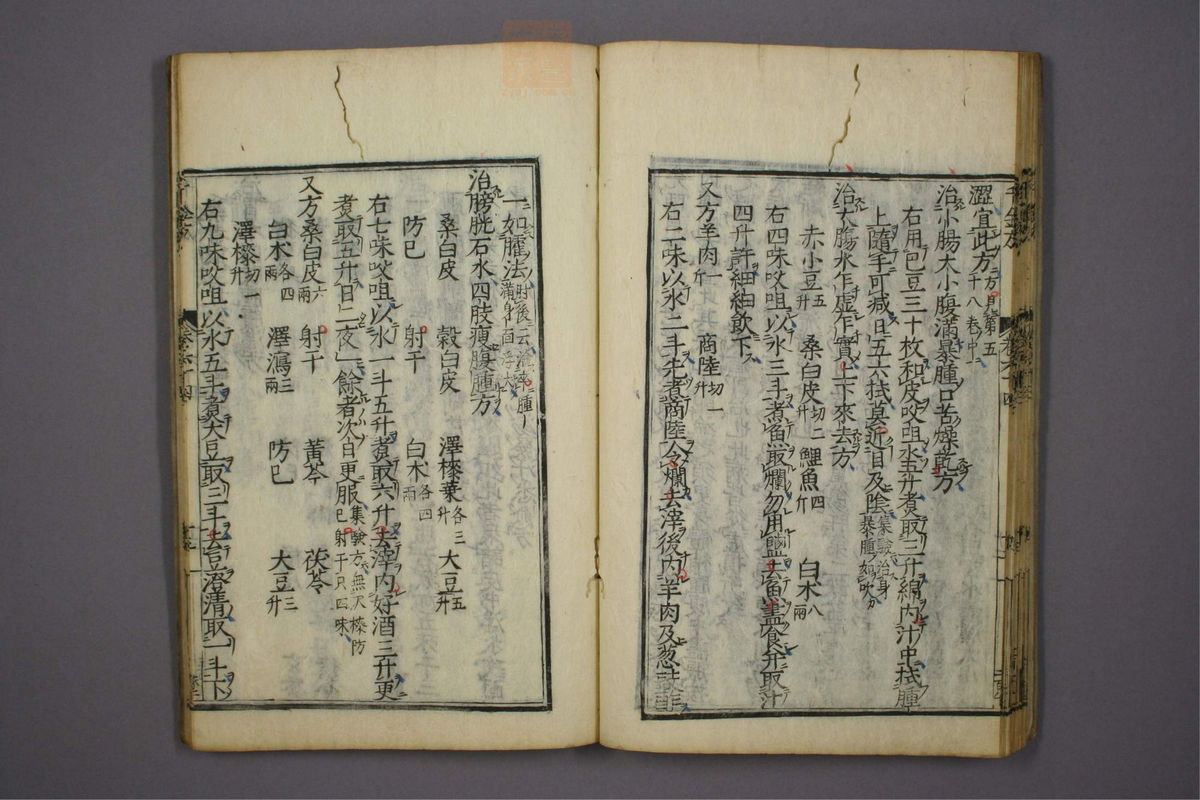 澀宜此方方見第五十八卷中
治小腸水小腹滿暴腫口苦燥乾方
右用巴豆三十枚和皮㕮咀水五升煮取三升綿內汁中拭腫
上隨手可減日五六拭莫近目及陰集驗治身暴腫如吹
治大腸水乍虛乍實上下來去方
赤小豆五升 桑白皮切二升 鯉魚四斤 白木八兩
右四味㕮咀以水三斗煮魚取爛勿用鹽去魚盡食并取汁
四升許細細飲下
又方羊肉一斤 商陸切一升
右二味以水二斗先煮商陸令爛去滓後內羊肉及葱豉醋
一如臛法肘後云治卒腫滿身面浮大
治膀胱石水四肢瘦腹腫方
桑白皮 榖白皮 澤㯶葉各三升 大豆五升
防巳 射干 白木各四兩
右七味㕮咀以水一斗五升煮取六升去滓內好酒三升更
煮取五升日二夜一餘者次日更服集驗方無澤㯶防巳射干只四味
又方桑白皮六兩 射干 黃芩 茯苓
白木各四兩 澤瀉三兩 防巳 大豆三升
澤㯶切一升
右九味㕮咀以水五斗煮大豆取三斗去豆澄清取一斗下